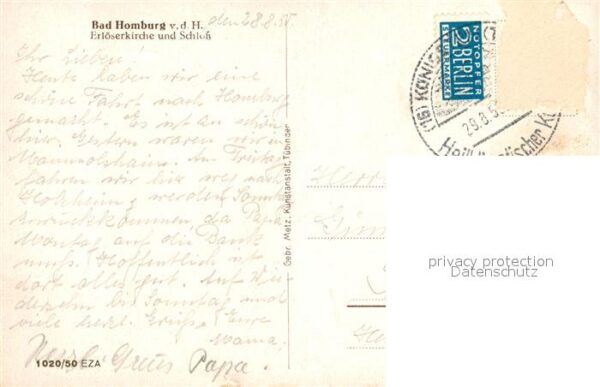 Bad Homburg v. d. H.
Erlöserkirche und Schloß
den 28.8.5
Ihr Lieben!
Heute haben wir eine
schöne Fahrt nach Homburg
gemacht. Es ist so schön
hier. Gestern waren wir in
Mammolshain. Am Freitag
fahren wir hier weg nach
Holzheim, werden Sonntag
zurückkommen da Papa
Montag auf die Bank
muß. Hoffentlich ist
dort alles gut. Auf Wie-
dersehn bis Sonntag und
viele herzl. Grüße Eure
Mama.
Herzl. Gruss Papa.
1020/50 EZA
Gebr. Metz, Kunstanstalt, Tübingen
Herrn
(16) KÖNIG
29.8.5
Heilklimatischer K
NOTOPFER
2 BERLIN
STEUERMARKE
privacy protection
Datenschutz